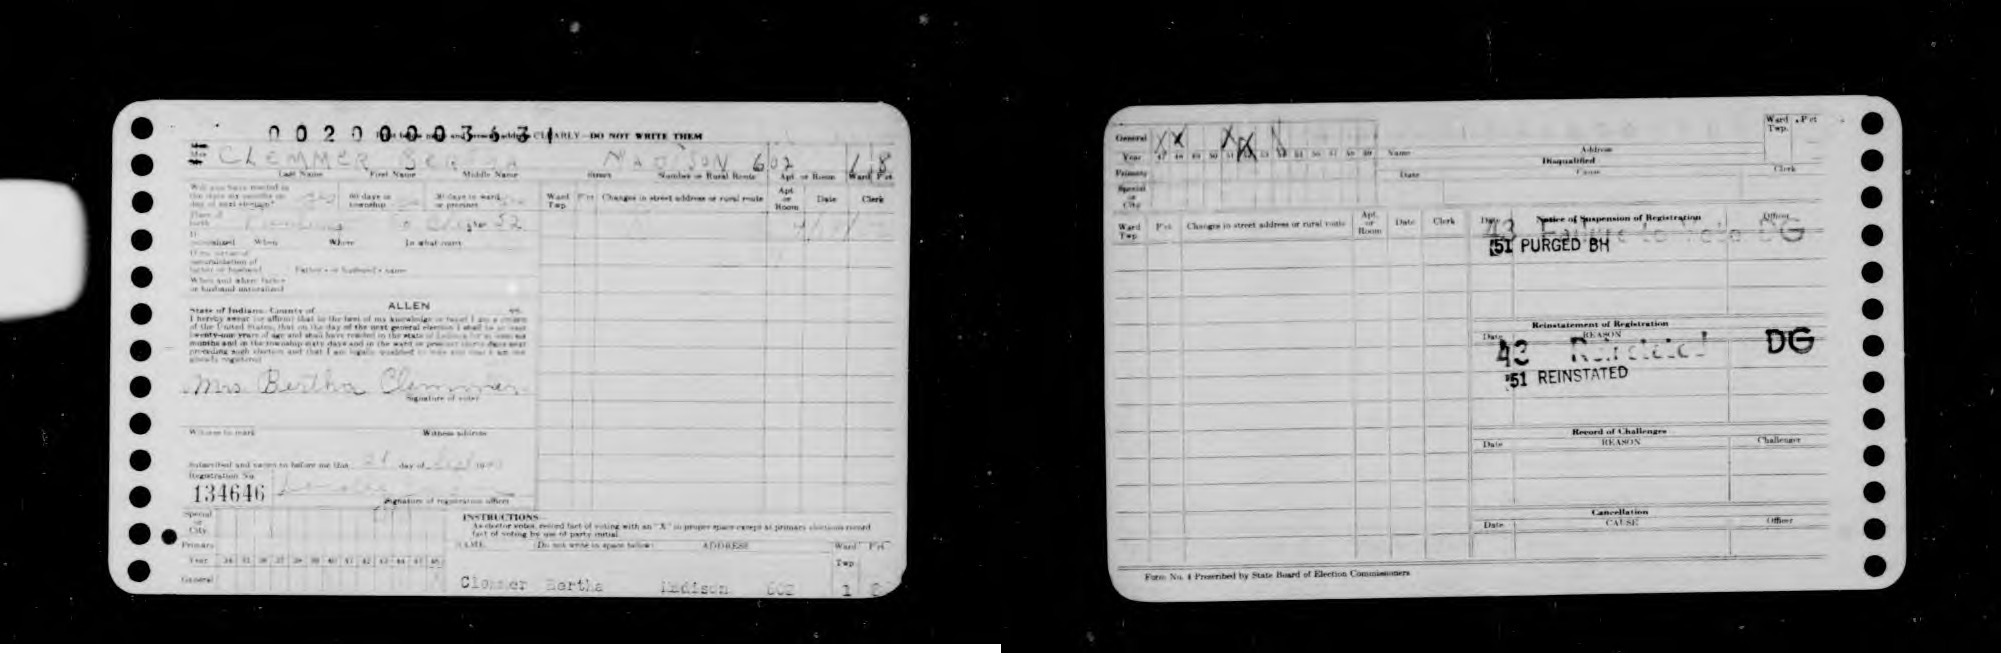 00200003631
CLEARLY—DO NOT WRITE THEM
CLEMMER BERTHA MADISON 602 1 8
Last Name First Name Middle Name Street Number or Rural Route Apt. or Room Ward Pct.
Will you have resided in
the state six months on
day of next election?
60 days in
township
30 days in ward
or precinct
Ward
Twp.
Pct. Changes in street address or rural route
Apt.
or
Room
Date Clerk
Place of
birth
If
naturalized When Where In what court
If by virtue of
naturalization of
father or husband Father's or husband's name
When and where father
or husband naturalized
ALLEN
State of Indiana, County of ss.
I hereby swear (or affirm) that to the best of my knowledge or belief I am a citizen
of the United States, that on the day of the next general election I shall be at least
twenty-one years of age and shall have resided in the state of Indiana for at least six
months and in the township sixty days and in the ward or precinct thirty days next
preceding such election and that I am legally qualified to vote and that I am not
already registered
Mrs Bertha Clemmer
Signature of voter
Witness to mark Witness address
Subscribed and sworn to before me this day of 19
Registration No.
134646
Signature of registration officer
Special
or
City
Primary
Year
General
INSTRUCTIONS
As elector votes, record fact of voting with an "X" in proper space except at primary elections record
fact of voting by use of party initial.
NAME (Do not write in space below) ADDRESS Ward Pct.
Twp.
Clemmer Bertha Madison 602 1 8
General X X X X X
Year 47 48 49 50 51 52 53 54 55 56 57 58 59
Primary
Special
or
City
Name Address
Ward Pct.
Twp.
Disqualified
Date Cause Clerk
Ward
Twp.
Pct. Changes in street address or rural route
Apt.
or
Room
Date Clerk
Date Notice of Suspension of Registration Officer
43 Failure to Vote DG
'51 PURGED BH
Reinstatement of Registration
Date REASON
43 Reinstated DG
'51 REINSTATED
Record of Challenges
Date REASON Challenger
Cancellation
Date CAUSE Officer
Form No. 4 Prescribed by State Board of Election Commissioners